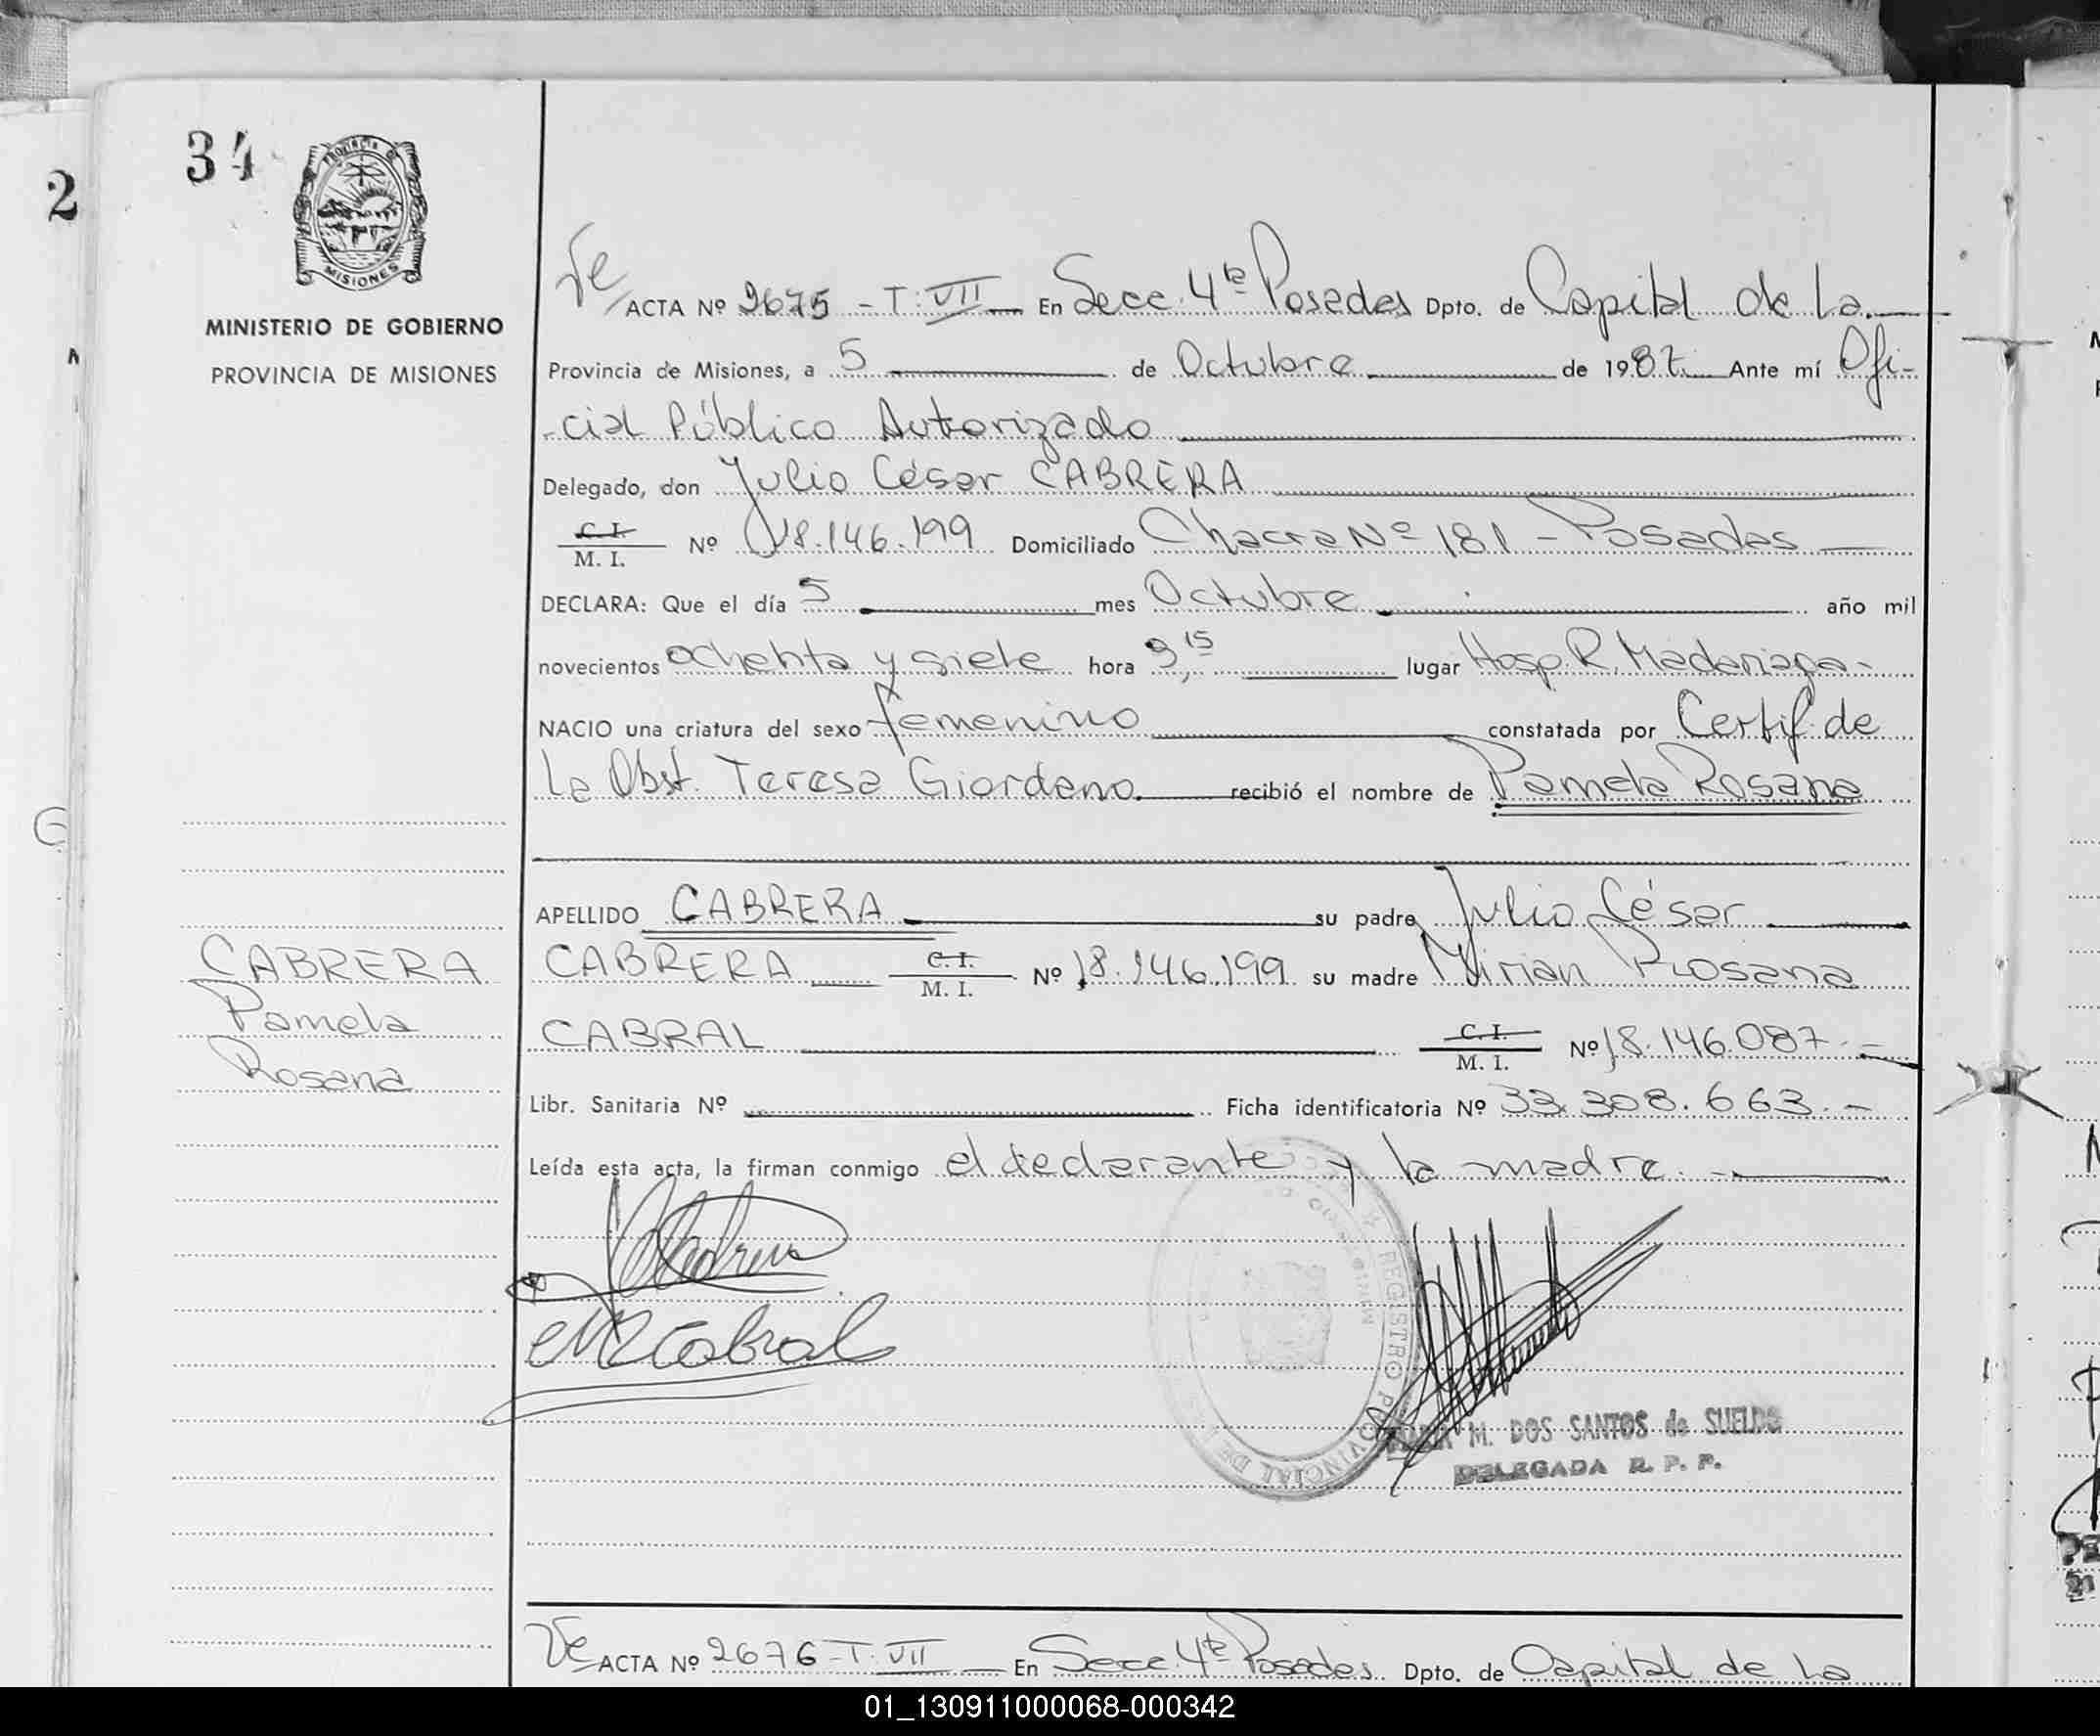 34
PROVINCIA DE
MISIONES
MINISTERIO DE GOBIERNO
PROVINCIA DE MISIONES
2
ACTA Nº 2675 - T. VII — En Secc. 4ta Posadas Dpto. de Capital de La
Provincia de Misiones, a 5 de Octubre de 1987. Ante mí Ofi-
-cial Público Autorizado
Delegado, don Julio César CABRERA
C. I.
M. I. Nº 18.146.199 Domiciliado Chacra Nº 181 - Posadas
DECLARA: Que el día 5 mes Octubre año mil
novecientos ochenta y siete hora 9,15 lugar Hosp. R. Madariaga-
NACIO una criatura del sexo femenino constatada por Certif de
La Obst. Teresa Giordano. recibió el nombre de Pamela Rosana
APELLIDO CABRERA su padre Julio César
CABRERA C. I. M. I. Nº 18.146.199 su madre Mirian Rosana
CABRAL C. I. M. I. Nº 18.146.087.-
CABRERA
Pamela
Rosana
Libr. Sanitaria Nº Ficha identificatoria Nº 33.308.663.-
Leída esta acta, la firman conmigo el declarante y la madre.-
Cabral
REGISTRO PROVINCIAL DE
M. DOS SANTOS de SUELDO
DELEGADA R. P. P.
ACTA Nº 2676-T. VII — En Secc. 4ta Posadas Dpto. de Capital de La
01_130911000068-000342